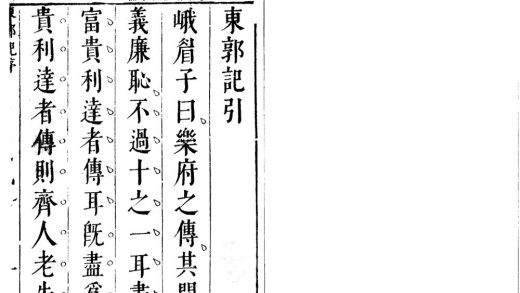 東郭記引
峨眉子曰樂府之傳其
義廉恥不過十之一耳
富貴利達者傳耳既盡
貴利達者傳則齊人老